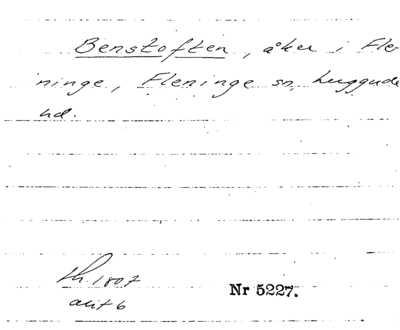 Benstoften, åker i Fle-
ninge, Fleninge sn, Luggude
hd.
th. 1807
akt 6
Nr 5227.